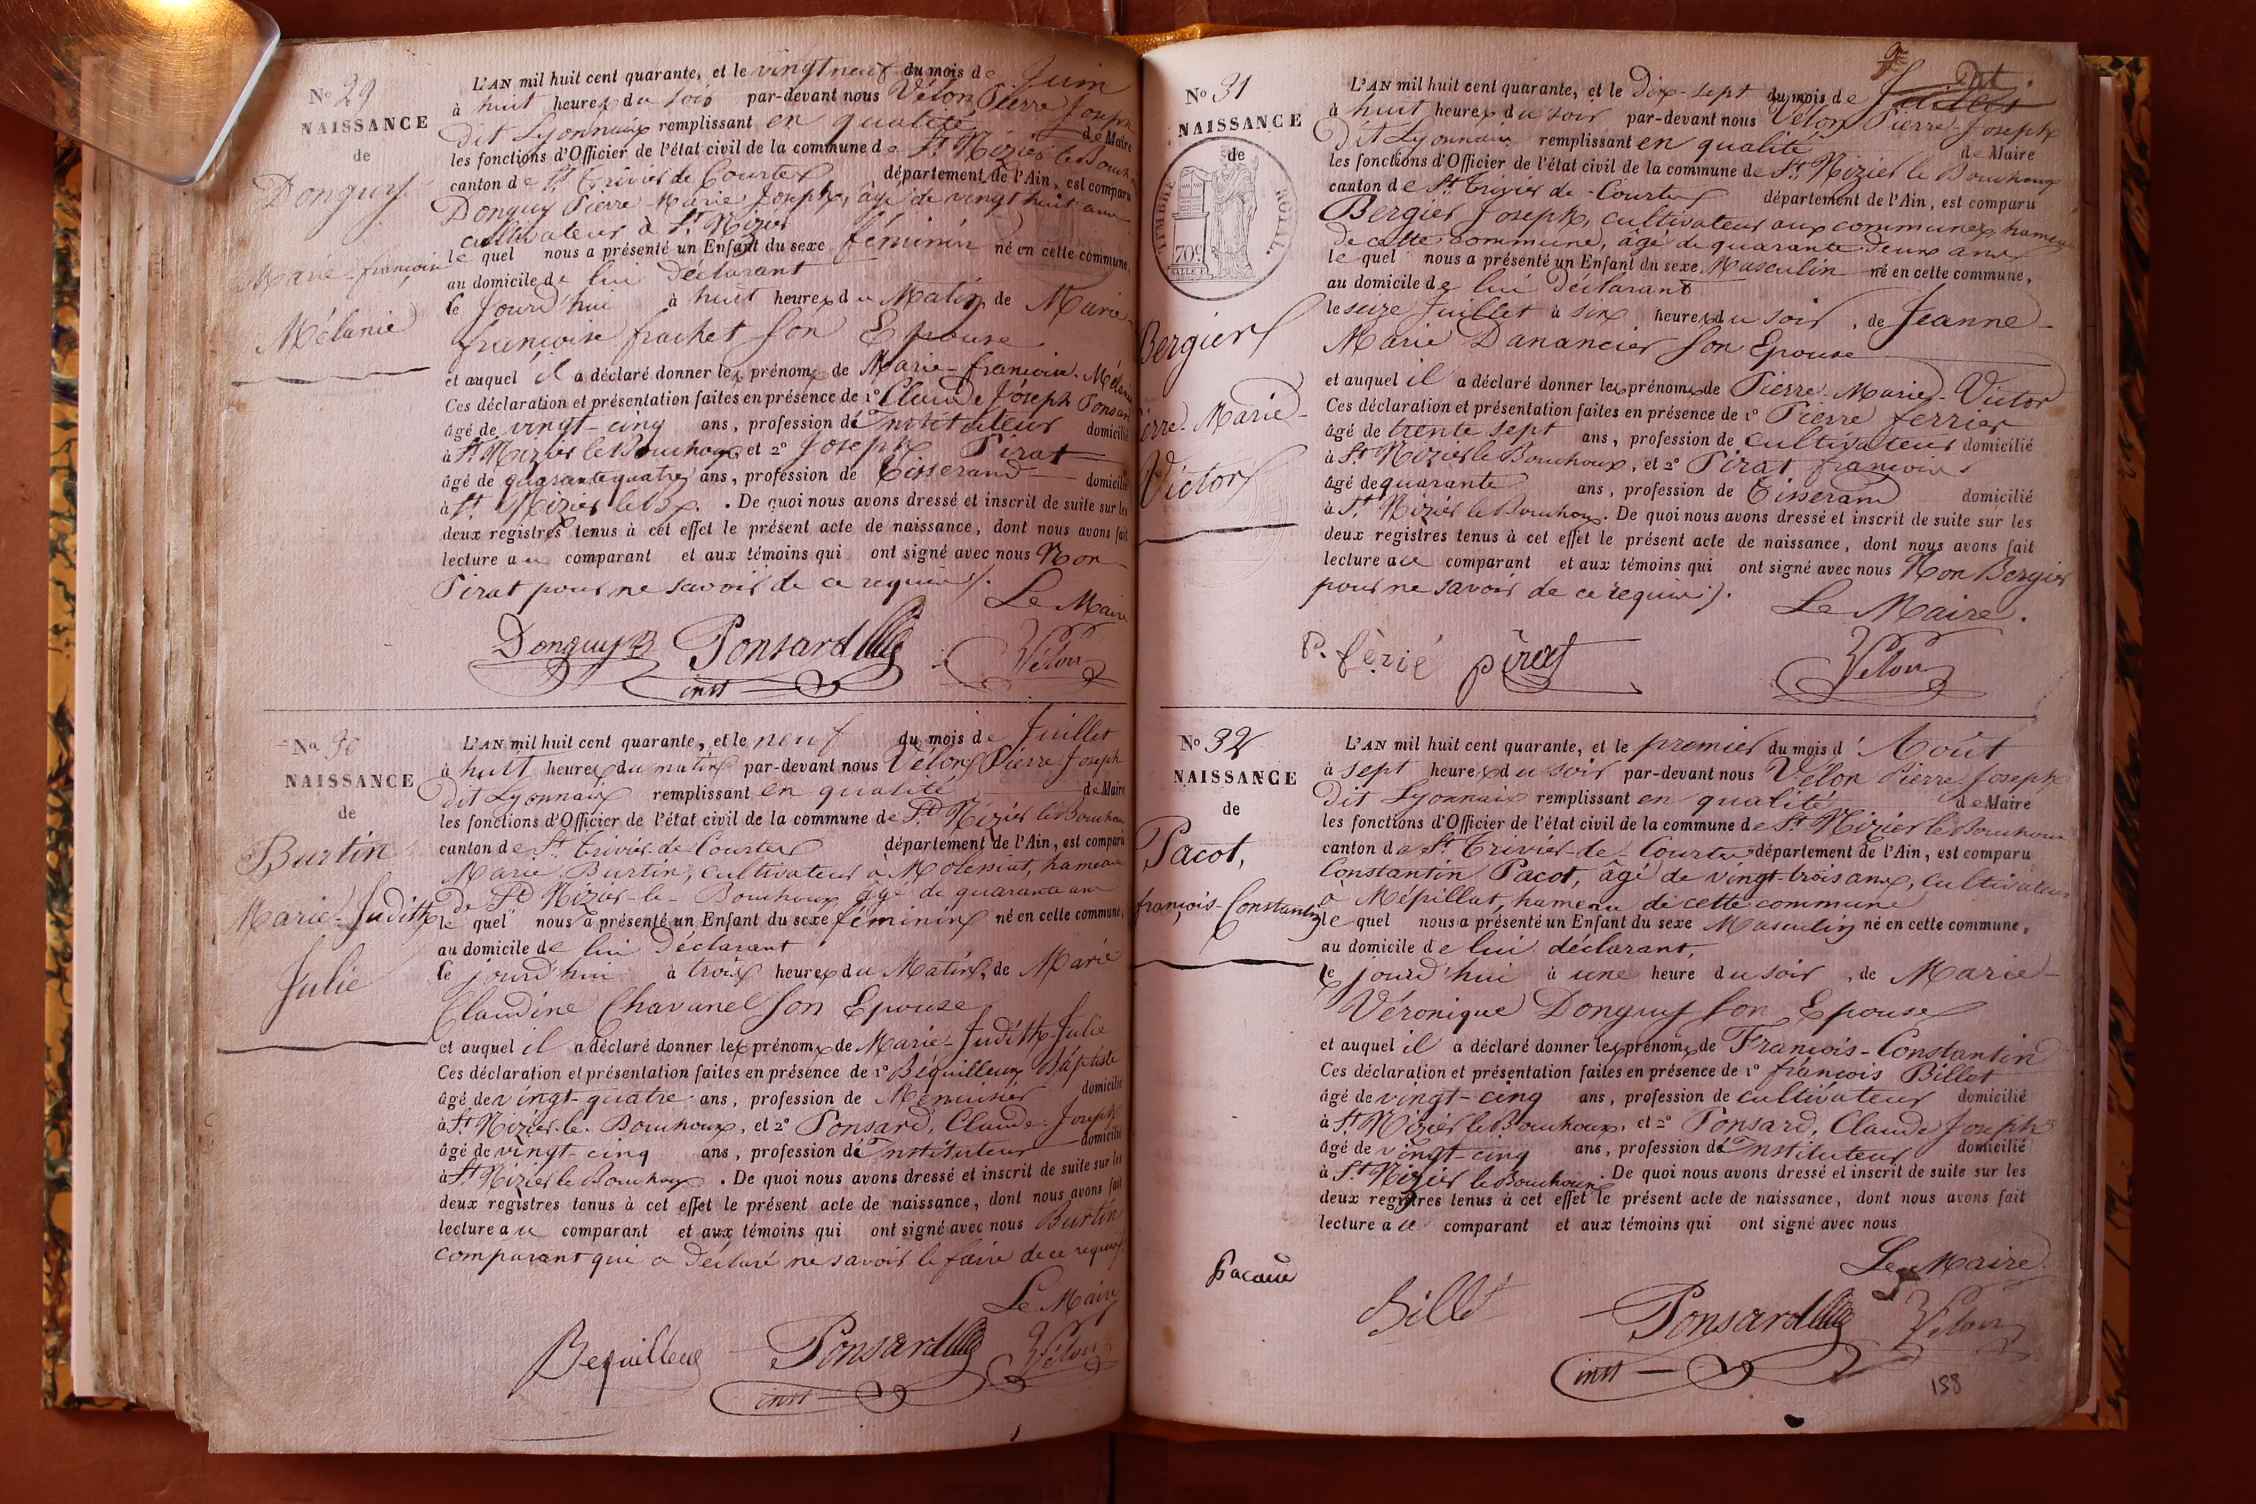 No 29
NAISSANCE
de
Donguy
Marie-françoise
Mélanie
L'AN mil huit cent quarante, et le vingt neuf du mois de Juin
à huit heures du soir par-devant nous Vélon Pierre Joseph
dit Lyonnais remplissant en qualité de Maire
les fonctions d'Officier de l'état civil de la commune de St Nizier le Bouch
canton de St Trivier de Courtes département de l'Ain, est comparu
Donguy Pierre Marie Joseph, âgé de vingt huit ans
cultivateur à St Nizier
le quel nous a présenté un Enfant du sexe féminin né en cette commune,
au domicile de lui déclarant
le Jourd'hui à huit heures du Matin de Marie
françoise frachet son Epouse
et auquel il a déclaré donner les prénoms de Marie-françoise. Mélanie
Ces déclaration et présentation faites en présence de 1° Claude Joseph Ponsard
âgé de vingt-cinq ans, profession d'Instituteur domicilié
à St Nizier le Bouchoux et 2° Joseph Pirat
âgé de quarante quatre ans, profession de Tisserand domicilié
à St Nizier le Bx. De quoi nous avons dressé et inscrit de suite sur les
deux registres tenus à cet effet le présent acte de naissance, dont nous avons fait
lecture au comparant et aux témoins qui ont signé avec nous Non
Pirat pour ne savoir de ce requis.
Le Maire
Donguy Ponsard Vélon
inst
No 30
NAISSANCE
de
Burtin
Marie-Judith
Julie
L'AN mil huit cent quarante, et le neuf du mois de Juillet
à huit heures du matin par-devant nous Vélon Pierre Joseph
dit Lyonnais remplissant en qualité de Maire
les fonctions d'Officier de l'état civil de la commune de St Nizier le Bouchoux
canton de St Trivier de Courtes département de l'Ain, est comparu
Marie Burtin, cultivateur à Molessiat, hameau
de St Nizier-le-Bouchoux âgé de quarante ans
le quel nous a présenté un Enfant du sexe féminin né en cette commune,
au domicile de lui déclarant
le jourd'hui à trois heures du Matin, de Marie
Claudine Chavanel son Epouse
et auquel il a déclaré donner les prénoms de Marie-Judith-Julie
Ces déclaration et présentation faites en présence de 1° Béquilleux Baptiste
âgé de vingt-quatre ans, profession de Menuisier domicilié
à St Nizier-le-Bouchoux, et 2° Ponsard, Claude-Joseph
âgé de vingt-cinq ans, profession d'Instituteur domicilié
à St Nizier le Bouchoux. De quoi nous avons dressé et inscrit de suite sur les
deux registres tenus à cet effet le présent acte de naissance, dont nous avons fait
lecture au comparant et aux témoins qui ont signé avec nous Burtin
comparant qui a déclaré ne savoir le faire de ce requis
Le Maire
Bequilleux Ponsard Vélon
inst
No 31
NAISSANCE
de
TIMBRE ROYAL
70c
Bergier
Pierre-Marie-
Victor
L'AN mil huit cent quarante, et le Dix-sept du mois de Juillet
à huit heures du soir par-devant nous Vélon Pierre-Joseph
dit Lyonnais remplissant en qualité de Maire
les fonctions d'Officier de l'état civil de la commune de St Nizier le Bouchoux
canton de St Trivier de Courtes département de l'Ain, est comparu
Bergier Joseph, cultivateur aux communes, hameau
de cette commune, âgé de quarante deux ans
le quel nous a présenté un Enfant du sexe Masculin né en cette commune,
au domicile de lui déclarant
le seize Juillet à six heures du soir, de Jeanne-
Marie Danancier son Epouse
et auquel il a déclaré donner les prénoms de Pierre-Marie-Victor
Ces déclaration et présentation faites en présence de 1° Pierre ferrier
âgé de trente sept ans, profession de cultivateur domicilié
à St Nizier le Bouchoux, et 2° Pirat françois
âgé de quarante ans, profession de Tisserand domicilié
à St Nizier le Bouchoux. De quoi nous avons dressé et inscrit de suite sur les
deux registres tenus à cet effet le présent acte de naissance, dont nous avons fait
lecture au comparant et aux témoins qui ont signé avec nous Non Bergier
pour ne savoir de ce requis.
Le Maire.
P. ferié pirat Vélon
No 32
NAISSANCE
de
Pacot,
françois-Constantin
L'AN mil huit cent quarante, et le premier du mois d'Août
à sept heures du soir par-devant nous Vélon Pierre-Joseph
dit Lyonnais remplissant en qualité de Maire
les fonctions d'Officier de l'état civil de la commune de St Nizier le Bouchoux
canton de St Trivier-de-Courtes département de l'Ain, est comparu
Constantin Pacot, âgé de vingt-trois ans, cultivateur
à Mépillat, hameau de cette commune
le quel nous a présenté un Enfant du sexe Masculin né en cette commune,
au domicile de lui déclarant,
le jourd'hui à une heure du soir, de Marie-
Véronique Donguy son Epouse
et auquel il a déclaré donner les prénoms de François-Constantin
Ces déclaration et présentation faites en présence de 1° françois Billet
âgé de vingt-cinq ans, profession de cultivateur domicilié
à St Nizier le Bouchoux, et 2° Ponsard, Claude Joseph
âgé de vingt-cinq ans, profession d'Instituteur domicilié
à St Nizier le Bouchoux. De quoi nous avons dressé et inscrit de suite sur les
deux registres tenus à cet effet le présent acte de naissance, dont nous avons fait
lecture au comparant et aux témoins qui ont signé avec nous
Le Maire
Billet Ponsard Vélon
inst
158